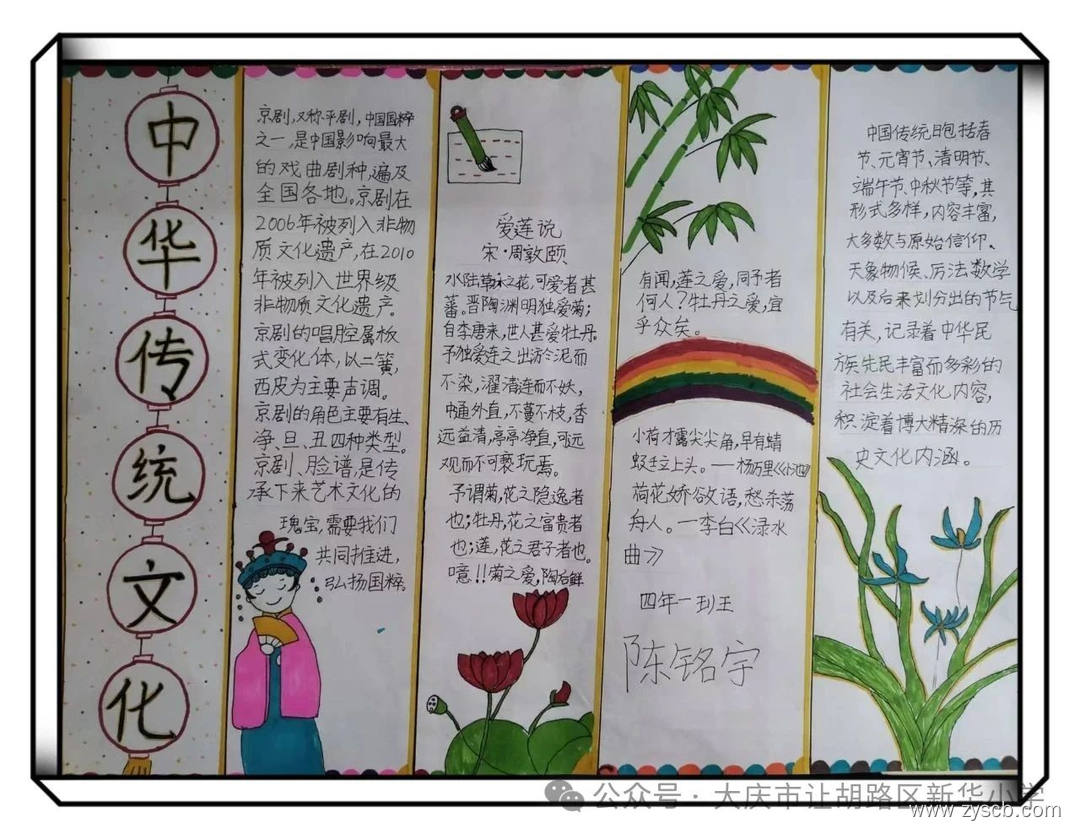 中
华
传
统
文
化
京剧,又称平剧,中国国粹
之一,是中国影响最大
的戏曲剧种,遍及
全国各地。京剧在
2006年被列入非物
质文化遗产,在2010
年被列入世界级
非物质文化遗产。
京剧的唱腔属板
式变化体,以二簧,
西皮为主要声调。
京剧的角色主要有生、
净、旦、丑四种类型。
京剧、脸谱,是传
承下来艺术文化的
瑰宝,需要我们
共同推进,
弘扬国粹。
爱莲说
宋·周敦颐
水陆草木之花,可爱者甚
蕃。晋陶渊明独爱菊;
自李唐来,世人甚爱牡丹。
予独爱莲之出淤泥而
不染,濯清涟而不妖,
中通外直,不蔓不枝,香
远益清,亭亭净直,可远
观而不可亵玩焉。
予谓菊,花之隐逸者
也;牡丹,花之富贵者
也;莲,花之君子者也。
噫!!菊之爱,陶后鲜
有闻,莲之爱,同予者
何人?牡丹之爱,宜
乎众矣。
小荷才露尖尖角,早有蜻
蜓立上头。——杨万里《小池》
荷花娇欲语,愁杀荡
舟人。—李白《渌水
曲》
四年一班王
陈铭宇
中国传统日包括春
节、元宵节、清明节、
端午节、中秋节等,其
形式多样,内容丰富,
大多数与原始信仰、
天象物候、历法数学
以及后来划分出的节气
有关,记录着中华民
族先民丰富而多彩的
社会生活文化内容,
积淀着博大精深的历
史文化内涵。
公众号·大庆市让胡路区新华小学
www.zyscb.com